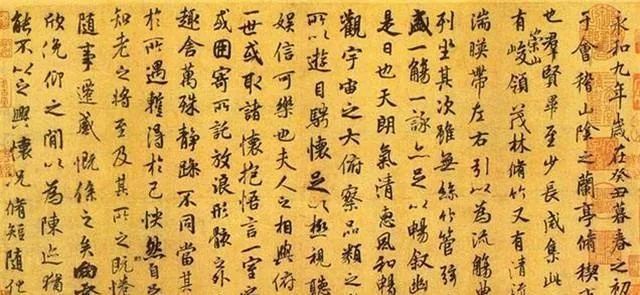 永和九年歲在癸丑暮春之初
于會稽山陰之蘭亭脩稧
也羣賢畢至少長咸集此
有崇山峻領茂林脩竹又有清流
湍暎帶左右引以為流觴曲
列坐其次雖無絲竹管弦
盛一觴一詠亦足以暢敘幽
是日也天朗氣清惠風和暢
觀宇宙之大俯察品類之
所以遊目騁懷足以極視聽
娛信可樂也夫人之相與俯
一世或取諸懷抱悟言一室之
或因寄所託放浪形骸之外
趣舍萬殊靜躁不同當其
於所遇暫得於己怏然自
知老之將至及其所之既惓
隨事遷感慨係之矣向之
欣俛仰之閒以為陳迹猶
能不以之興懷況脩短隨化